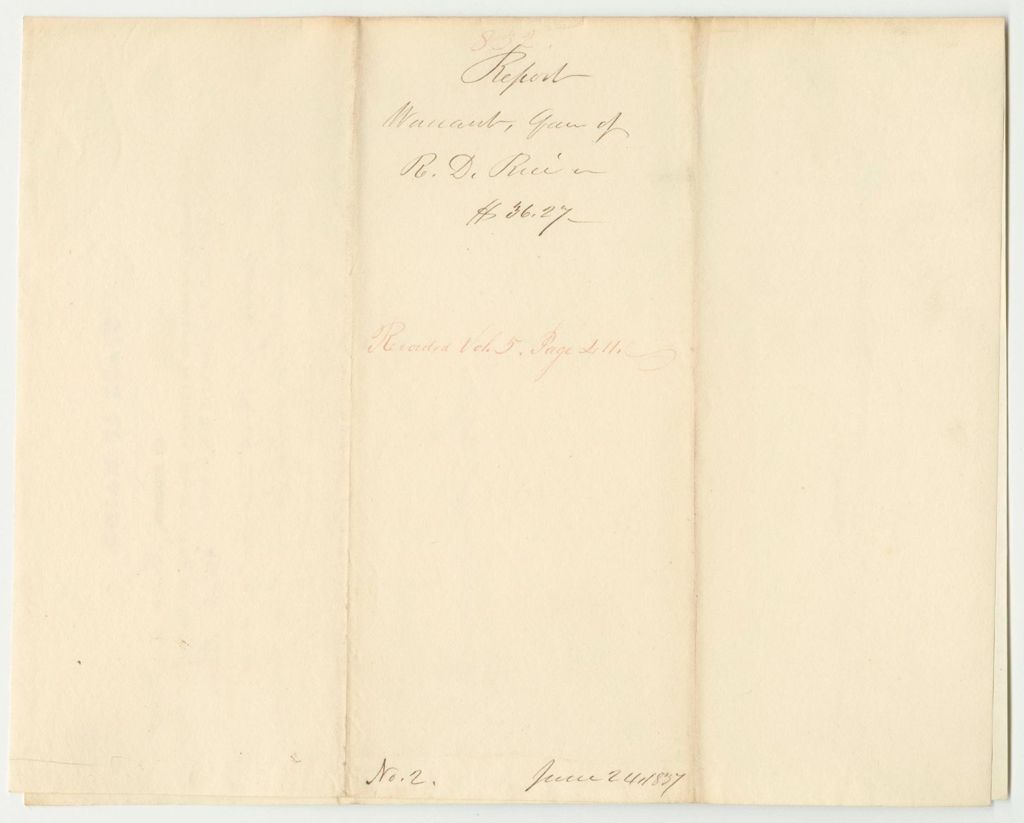 Report
Warrant, favor of
R. D. Rice
$36.27
Recorded Vol. 5. Page 211.
No. 2. June 24, 1837